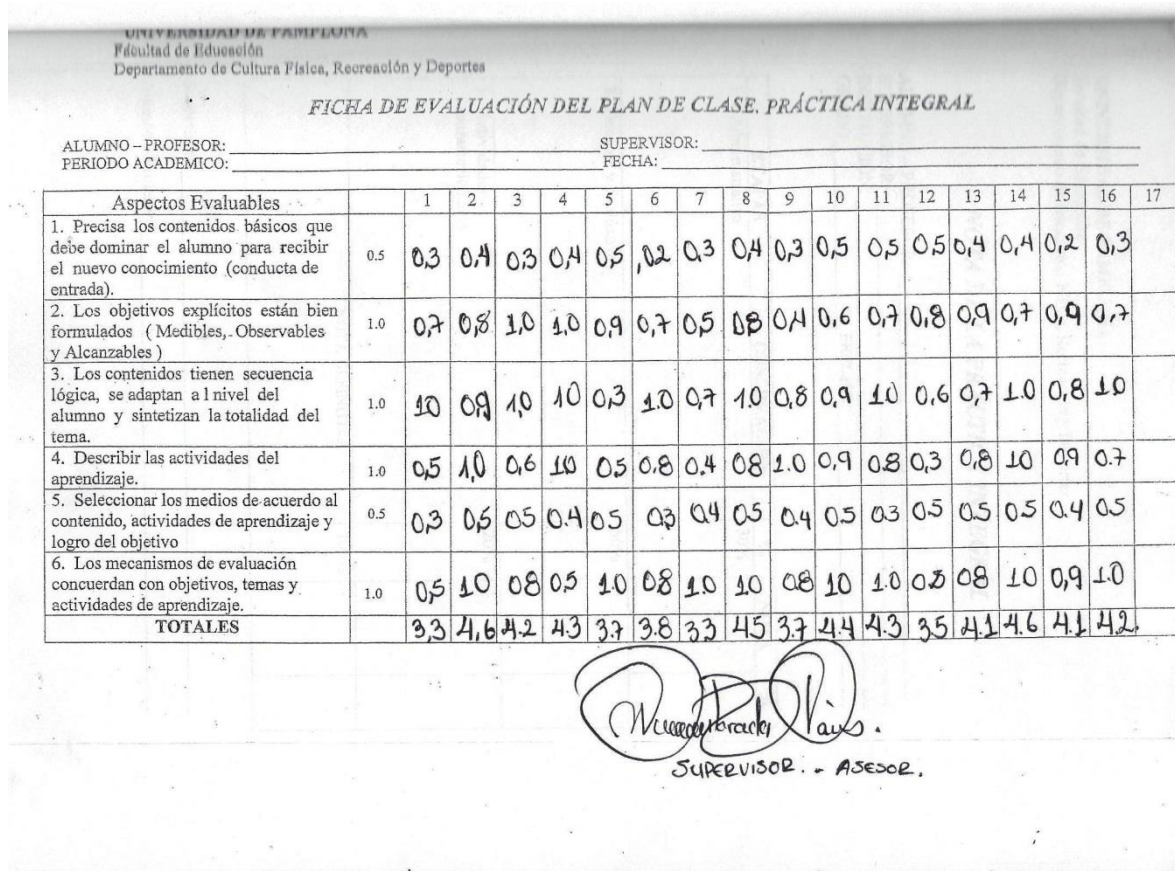 UNIVERSIDAD DE PAMPLONA
Facultad de Educación
Departamento de Cultura Física, Recreación y Deportes
FICHA DE EVALUACIÓN DEL PLAN DE CLASE. PRÁCTICA INTEGRAL
ALUMNO – PROFESOR: SUPERVISOR:
PERIODO ACADEMICO: FECHA:
Aspectos Evaluables 1 2 3 4 5 6 7 8 9 10 11 12 13 14 15 16 17
1. Precisa los contenidos básicos que
debe dominar el alumno para recibir
el nuevo conocimiento (conducta de
entrada).
0.5 0,3 0,4 0,3 0,4 0,5 ,02 0,3 0,4 0,3 0,5 0,5 0,5 0,4 0,4 0,2 0,3
2. Los objetivos explícitos están bien
formulados ( Medibles, Observables
y Alcanzables )
1.0 0,7 0,8 1,0 1,0 0,9 0,7 0,5 0,8 0,4 0,6 0,7 0,8 0,9 0,7 0,9 0,7
3. Los contenidos tienen secuencia
lógica, se adaptan a l nivel del
alumno y sintetizan la totalidad del
tema.
1.0 10 0,9 1,0 10 0,3 1.0 0,7 1.0 0,8 0,9 1.0 0,6 0,7 1.0 0,8 10
4. Describir las actividades del
aprendizaje.
1.0 0,5 1,0 0,6 1.0 0.5 0.8 0.4 08 1.0 0,9 0.8 0,3 0,8 10 0,9 0.7
5. Seleccionar los medios de acuerdo al
contenido, actividades de aprendizaje y
logro del objetivo
0.5 0,3 0,5 05 0.4 05 03 0.4 0.5 0.4 0.5 0.3 0.5 0.5 0.5 0.4 05
6. Los mecanismos de evaluación
concuerdan con objetivos, temas y
actividades de aprendizaje.
1.0 0,5 10 08 0,5 1.0 08 1.0 10 08 10 1.0 08 10 0,9 1.0
TOTALES 3,3 4,6 4.2 4.3 3.7 3.8 3.3 4.5 3.7 4.4 4.3 3.5 4.1 4.6 4.1 4.2.
SUPERVISOR. - ASESOR.